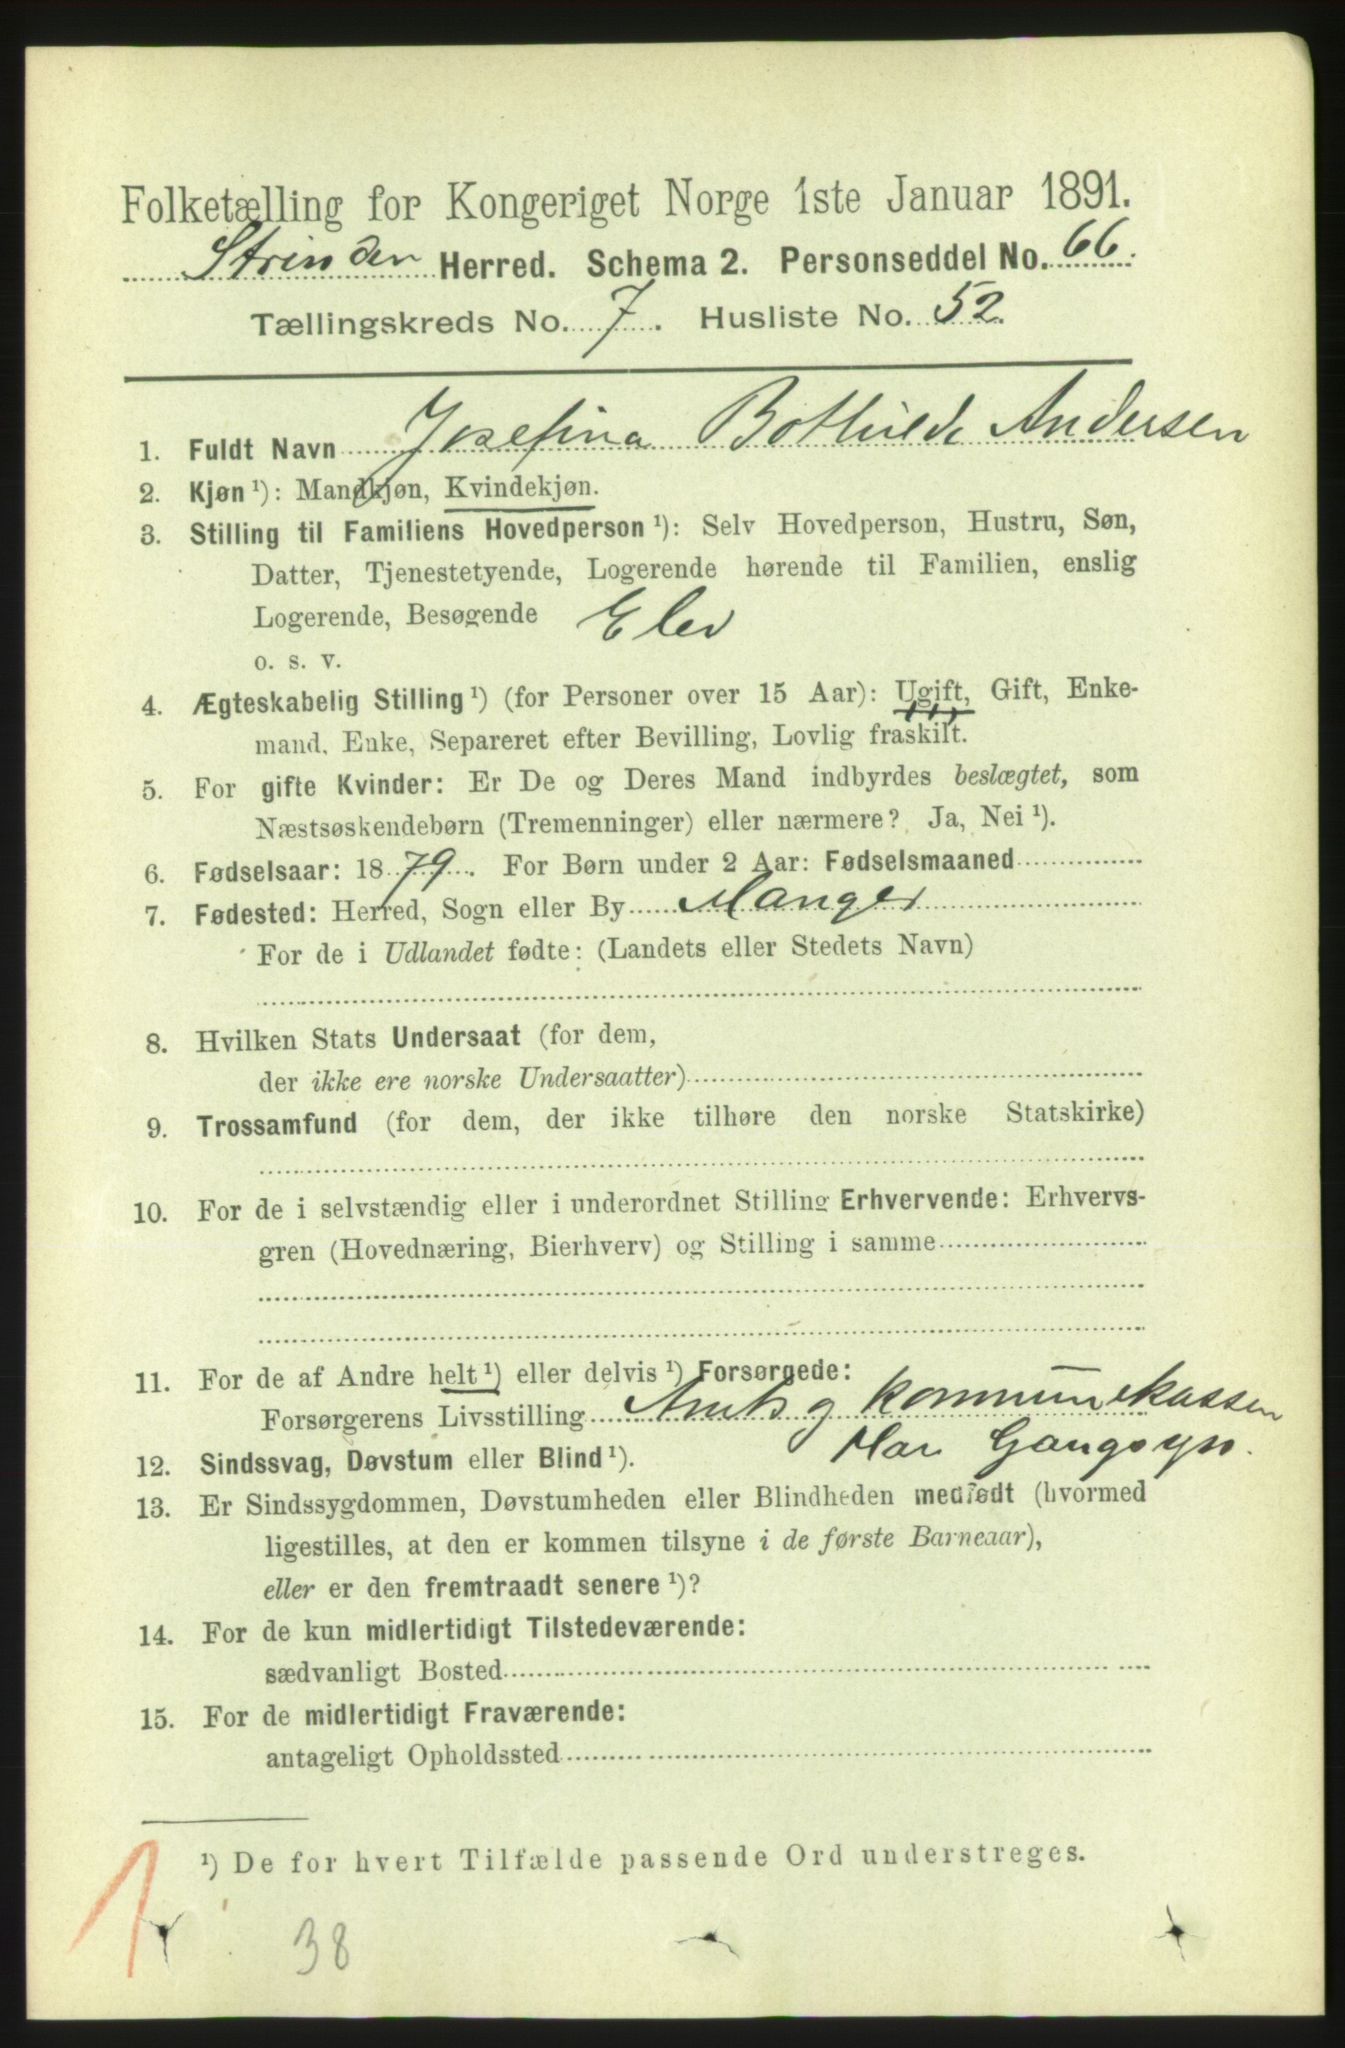 Folketælling for Kongeriget Norge 1ste Januar 1891.
Strinden Herred. Schema 2. Personseddel No. 66.
Tællingskreds No. 7. Husliste No. 52.
1. Fuldt Navn Josefina Bothilde Andersen
2. Kjøn ¹): Mandkjøn, Kvindekjøn.
3. Stilling til Familiens Hovedperson ¹): Selv Hovedperson, Hustru, Søn,
Datter, Tjenestetyende, Logerende hørende til Familien, enslig
Logerende, Besøgende Elev
o. s. v.
4. Ægteskabelig Stilling ¹) (for Personer over 15 Aar): Ugift, Gift, Enke-
mand, Enke, Separeret efter Bevilling, Lovlig fraskilt.
5. For gifte Kvinder: Er De og Deres Mand indbyrdes beslægtet, som
Næstsøskendebørn (Tremenninger) eller nærmere? Ja, Nei ¹).
6. Fødselsaar: 1879. For Børn under 2 Aar: Fødselsmaaned
7. Fødested: Herred, Sogn eller By Manger
For de i Udlandet fødte: (Landets eller Stedets Navn)
8. Hvilken Stats Undersaat (for dem,
der ikke ere norske Undersaatter)
9. Trossamfund (for dem, der ikke tilhøre den norske Statskirke)
10. For de i selvstændig eller i underordnet Stilling Erhvervende: Erhvervs-
gren (Hovednæring, Bierhverv) og Stilling i samme
11. For de af Andre helt ¹) eller delvis ¹) Forsørgede:
Forsørgerens Livsstilling Amts og kommunekassen
12. Sindssvag, Døvstum eller Blind ¹). Har Gangsyn.
13. Er Sindssygdommen, Døvstumheden eller Blindheden medfødt (hvormed
ligestilles, at den er kommen tilsyne i de første Barneaar),
eller er den fremtraadt senere ¹)?
14. For de kun midlertidigt Tilstedeværende:
sædvanligt Bosted
15. For de midlertidigt Fraværende:
antageligt Opholdssted
¹) De for hvert Tilfælde passende Ord understreges.
1
38